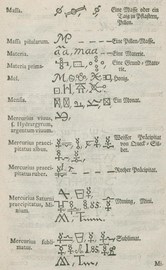 Massa. Eine Masse oder ein
Teig zu Pflastern,
Pillen.
Massa pilularum. Eine Pillen-Masse.
Materia. āā, maa Eine Materie.
Materia prima.
Mel. Honig.
Mensis. Ein Monat.
Mercurius vivus,
s. Hydrargyrum,
argentum vivum.
Mercurius præci-
pitatus albus. Weisser Præcipitat
von Queck-Sil-
ber.
Mercurius præci-
pitatus ruber. Rother Præcipitat.
Mercurius Saturni
præcipitatus, Mi-
nium. Mening, Mini.
Mercurius subli-
matus. Sublimat.